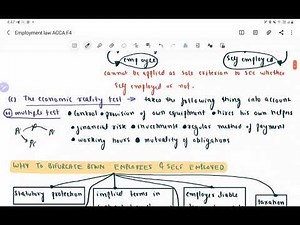 Employment law ACCA F4
employee
self employed
cannot be applied as sole criterion to see whether
self employed or not.
(c) The economic reality test → takes the following thing into account
multiple test • control • provision of own equipment • hires his own helpers
• financial risk • investments • regular method of payment
• working hours • mutuality of obligations
WHY TO BIFURCATE BTWN EMPLOYEES & SELF EMPLOYED
statutory protection
implied terms in
employer liable
taxation